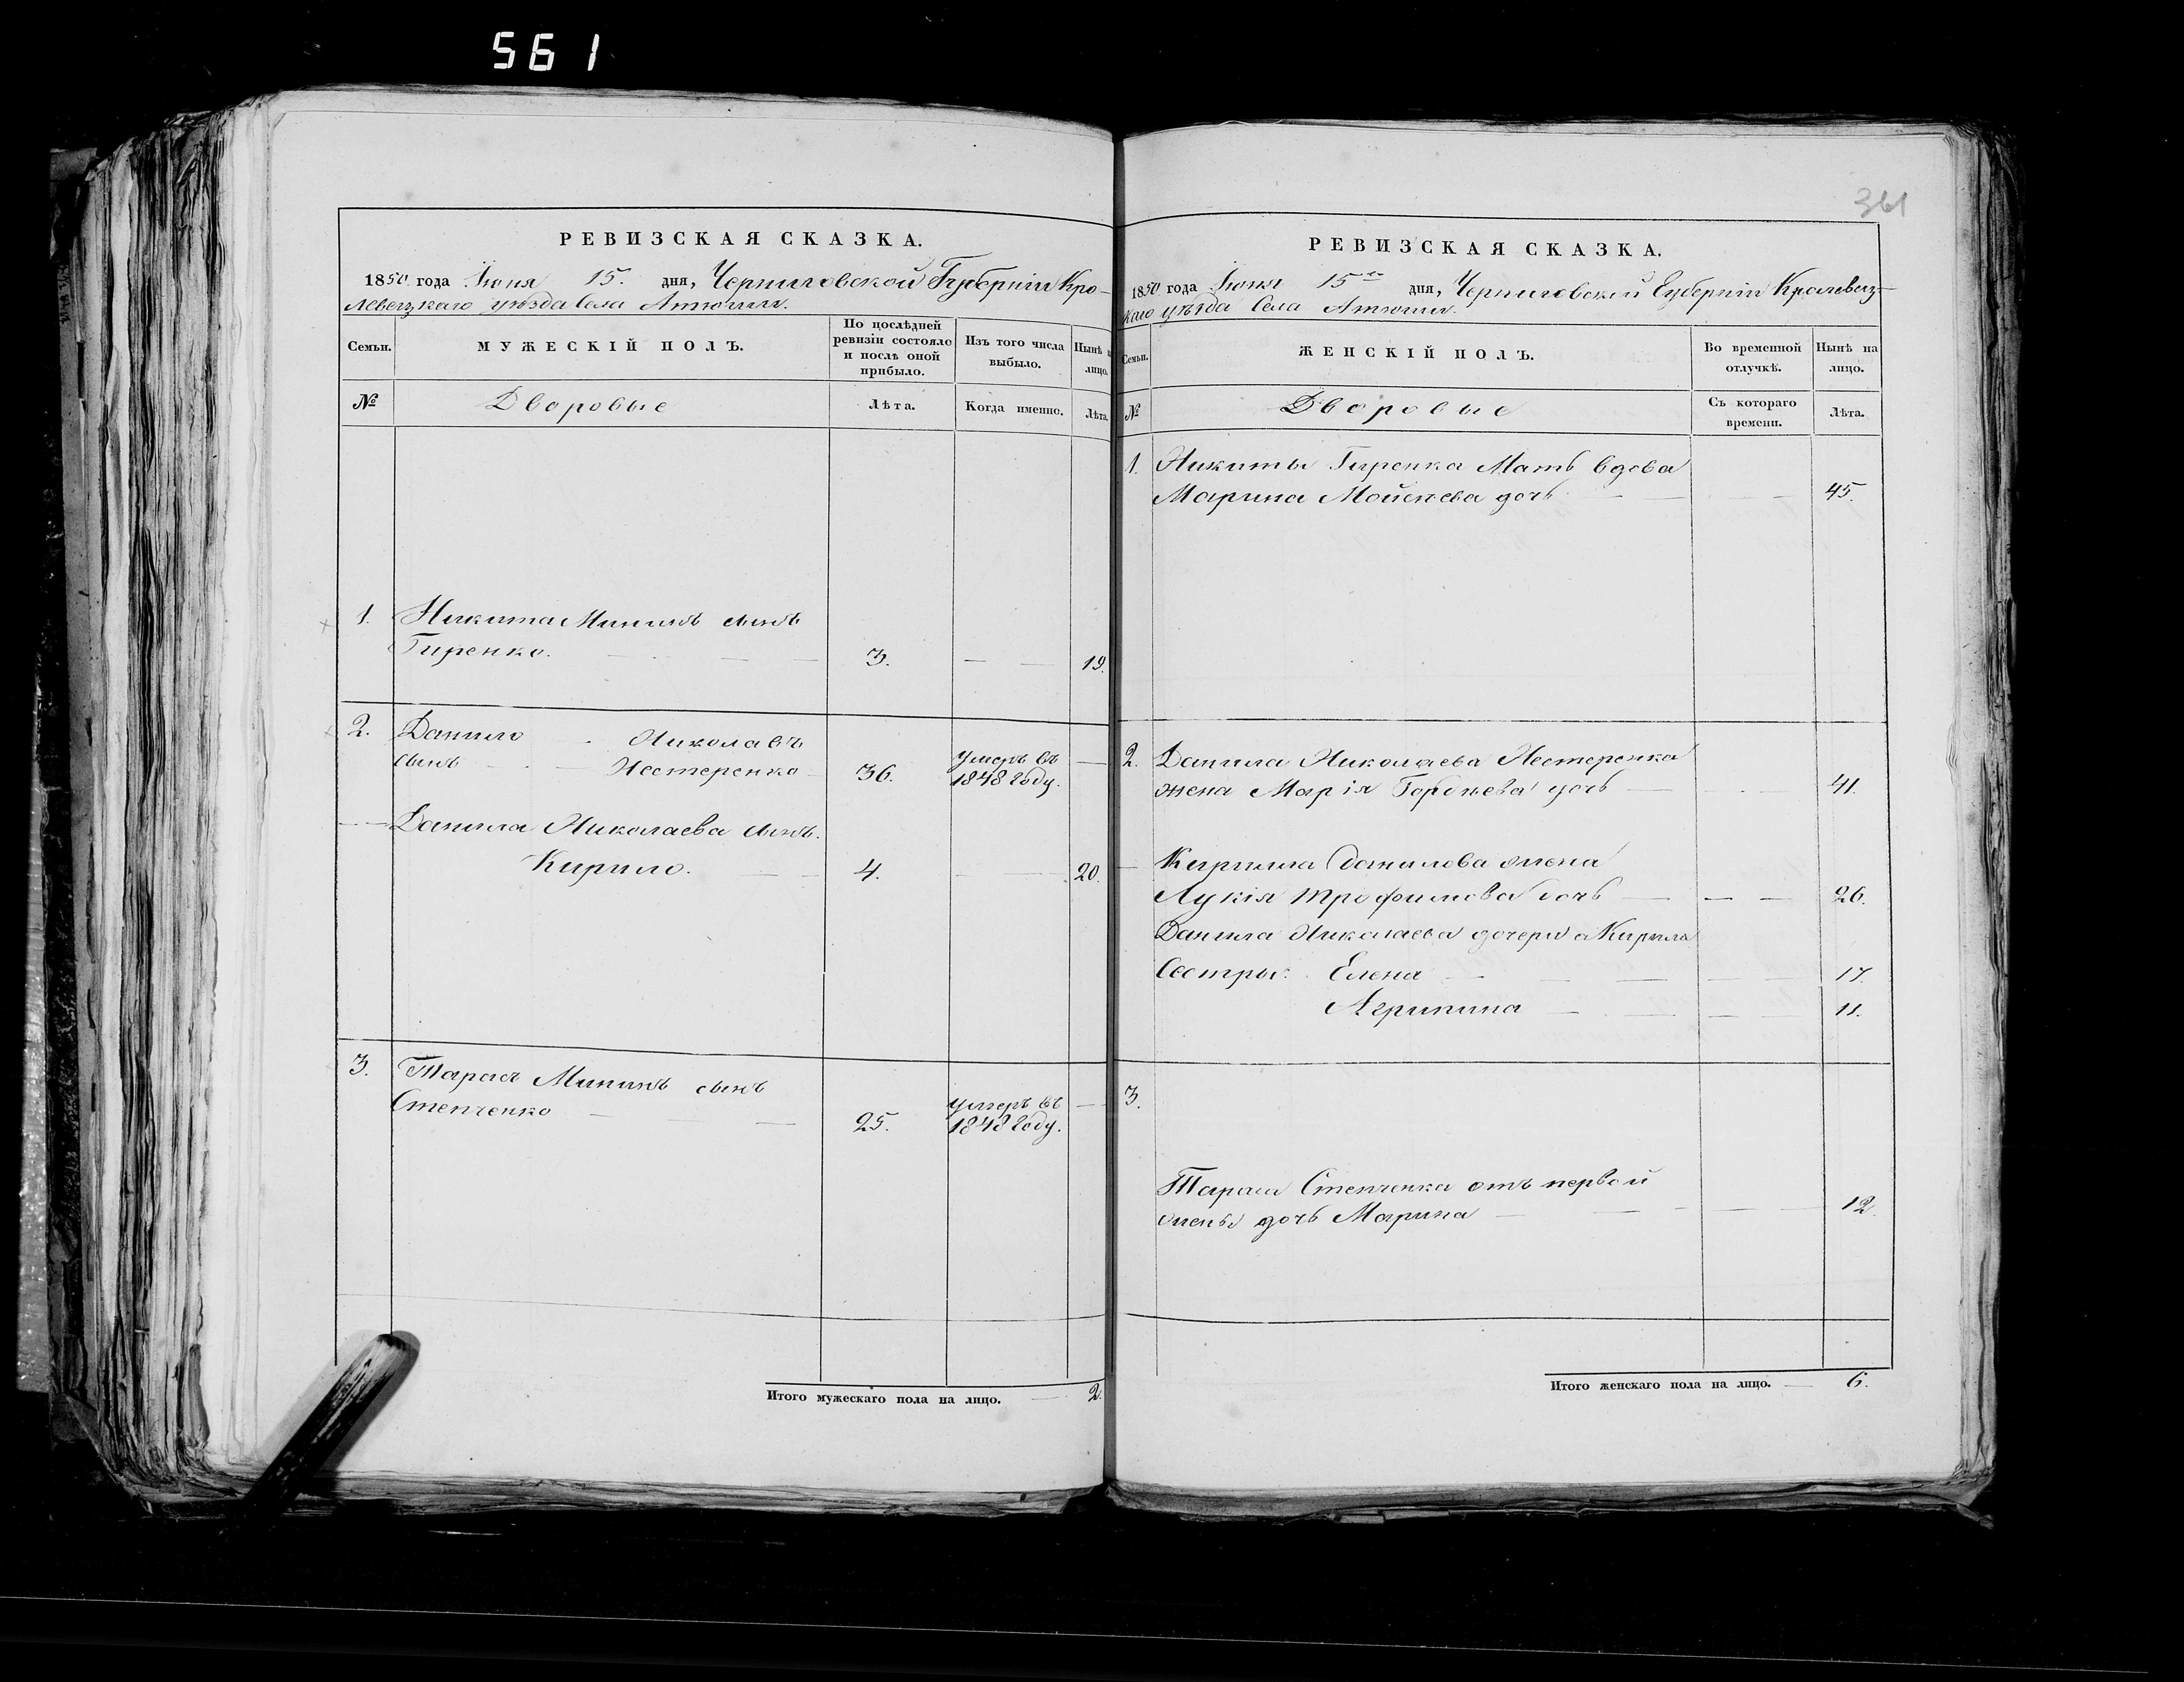 561
РЕВИЗСКАЯ СКАЗКА.
1850 года Іюня 15. дня, Черниговской Губерніи Кро-
левецкаго уѣзда Села Атюши.
Семьи.
МУЖЕСКІЙ ПОЛЪ.
По послѣдней ревизіи состояло и послѣ оной прибыло.
Изъ того числа выбыло.
Нынѣ на лицо.
№
Дворовые
Лѣта.
Когда именно.
Лѣта.
1. Никита Мининъ сынъ
Гиренко. 3. 19.
2. Данило Николаевъ
сынъ Нестеренко 36. умеръ въ
1848 году.
Данила Николаева сынъ.
Кирило. 4. 20.
3. Тарасъ Мининъ сынъ
Степченко 25. умеръ въ
1848 году.
Итого мужескаго пола на лицо. 2.
361
РЕВИЗСКАЯ СКАЗКА.
1850 года Іюня 15го дня, Черниговской Губерніи Кролевец-
каго уѣзда Села Атюши.
Семьи.
ЖЕНСКІЙ ПОЛЪ.
Во временной отлучкѣ.
Нынѣ на лицо.
№
Дворовые
Съ котораго времени.
Лѣта.
1. Никиты Гиренка Мать вдова
Марина Мойсѣева дочь 45.
2. Данила Николаева Нестеренка
жена Марія Гордѣева дочь 41.
Кирилла Данилова жена
Лукія Трофимова дочь 26.
Данила Николаева дочери а Кирила
Сестры: Елена 17.
Агрипина 11.
3.
Тараса Степченка отъ первой
жены дочь Марина 12.
Итого женскаго пола на лицо. 6.